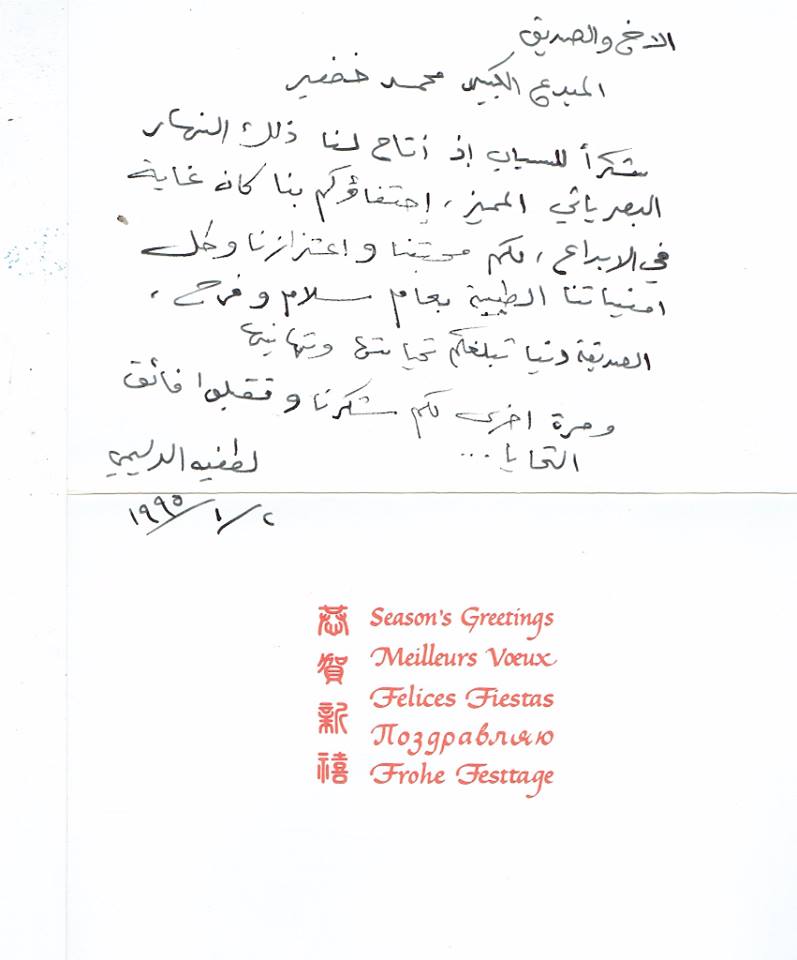 الاخ والصديق
المبدع الكبير محمد خضير
شكراً للسياب إذ أتاح لنا ذلك النهار
البصرياثي المميز، إحتفاؤكم بنا كان غاية
في الابداع، لكم محبتنا و اعتزازنا وكل
امنياتنا الطيبة بعام سلام و فرح،
الصديقة دنيا تبلغكم تحياتها وتهانيها
ومرة اخرى لكم شكرنا و تقبلوا فائق
التحايا...
لطفيه الدليمي
٢/١/١٩٩٥
恭賀新禧
Season's Greetings
Meilleurs Vœux
Felices Fiestas
Поздравляю
Frohe Festtage